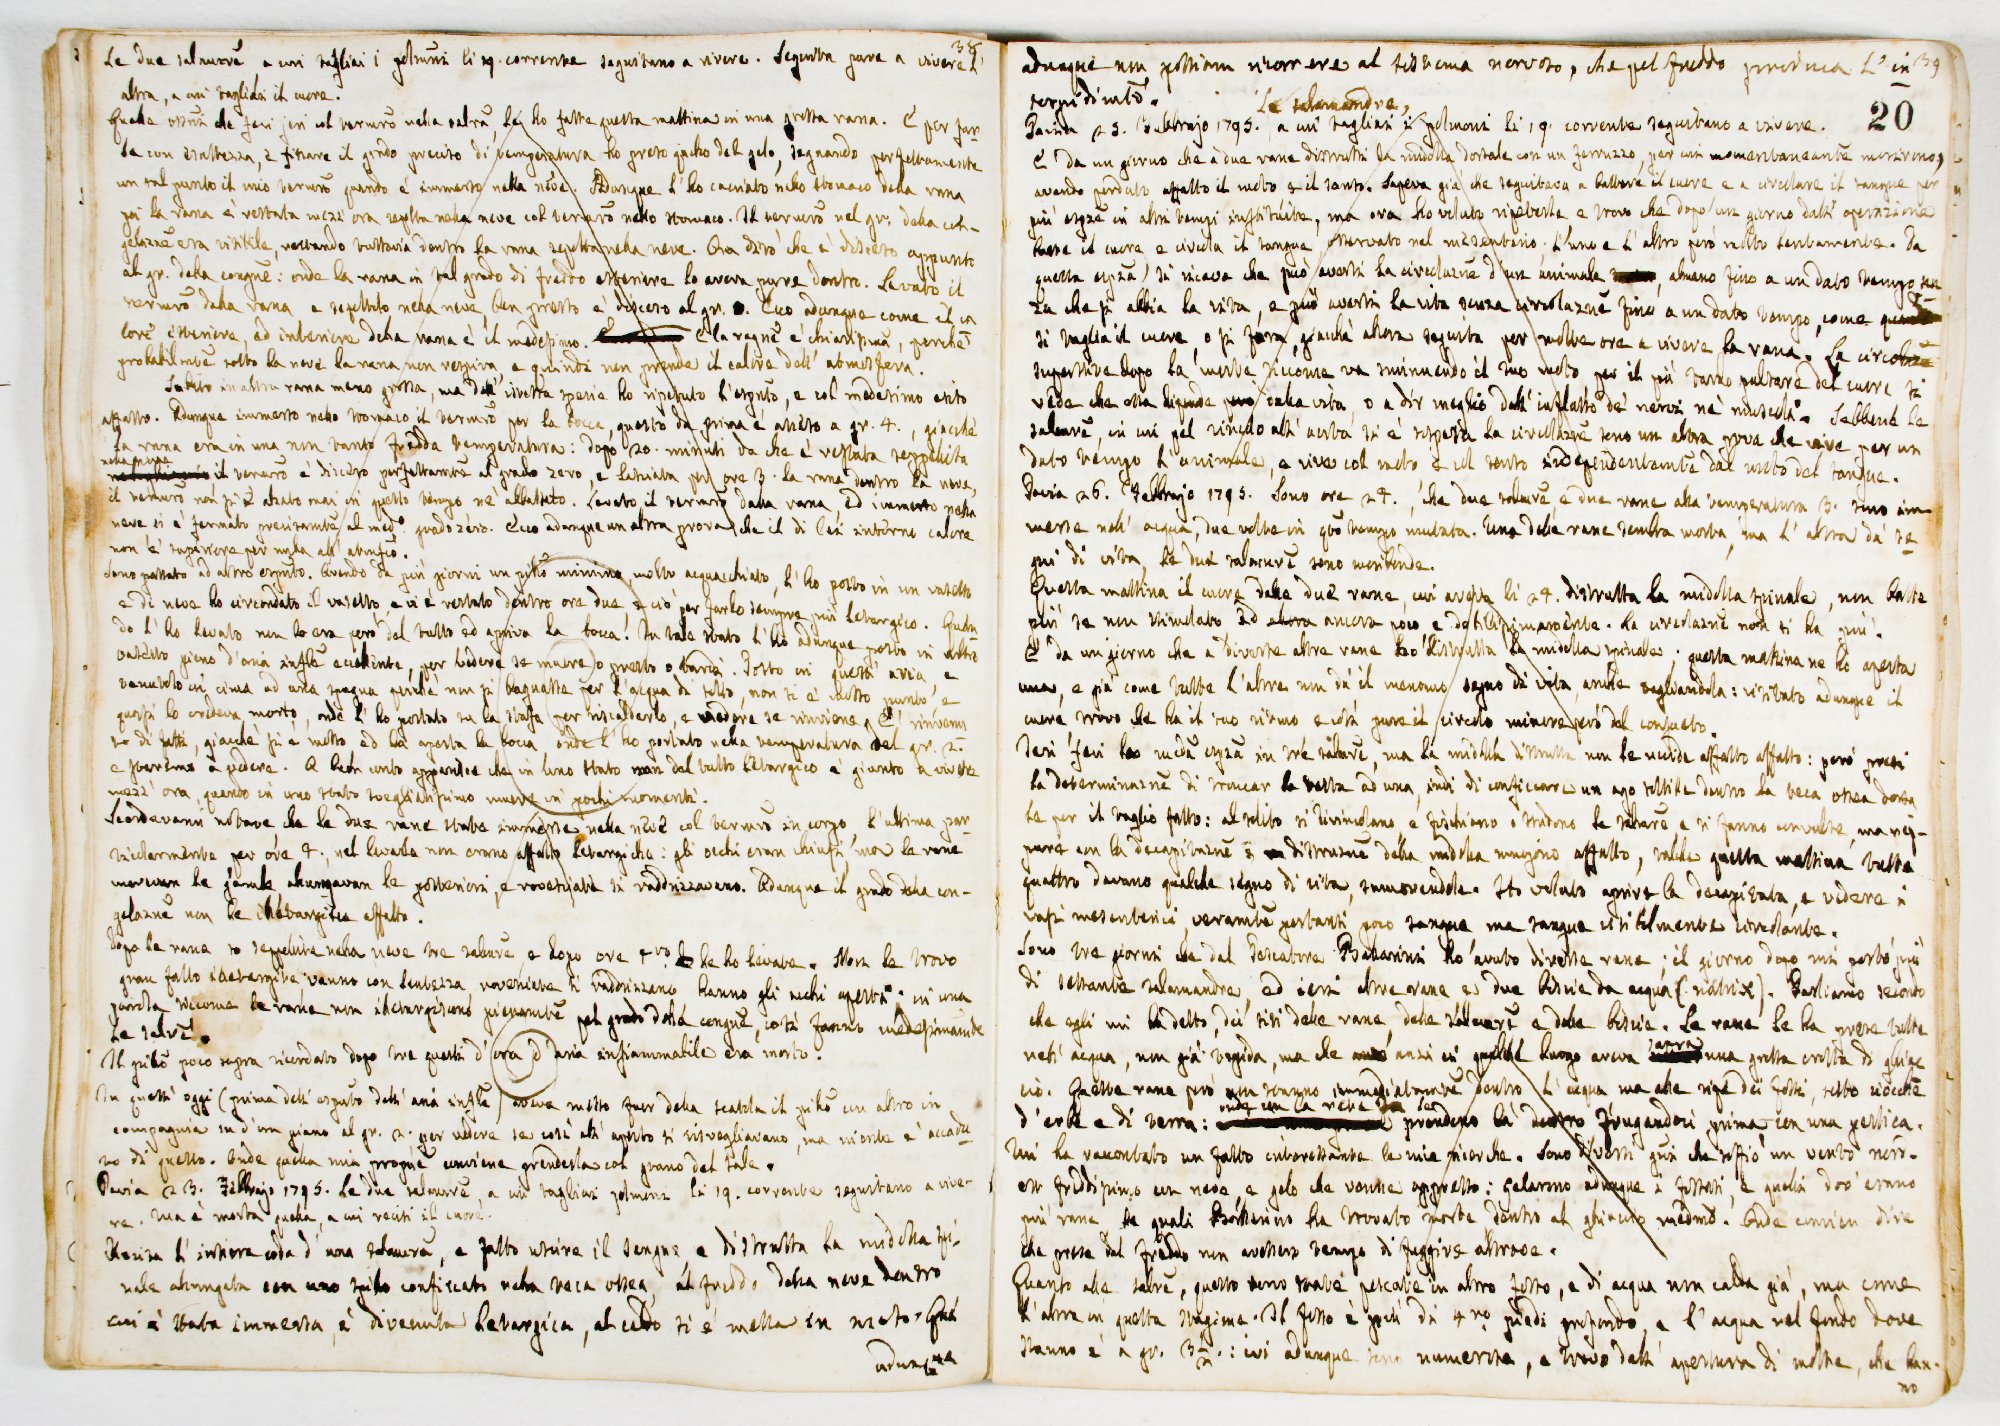 38
Le due salamrē a cui tagliai i polmoni li 19. corrente seguitano a vivere. Seguita pure a vivere l'
altra, a cui tagliai il cuore.
Quelle che feci jeri col termrō nella salrā, le ho fatte questa mattina in una grossa rana. E per far-
le con esattezza, e fissare il grado preciso di temperatura ho preso del gelo, segnando perfettamente
un tal punto il mio termrō quando è immerso nella neve. Adunque l'ho cacciato nello stomaco della rana
poi la rana è restata mezz'ora sepolta nella neve col termrō nello stomaco. Il termrō nel gr. della con-
gelaznē era visibile, restando tuttavia dentro la rana sepolta nella neve. Ora dirò che è disceso appunto
al gr. della congnē: onde la rana in tal grado di freddo esteriore lo aveva pure dentro. Levato il
termrō dalla rana e sepellito nella neve, ben presto è disceso al gr. 0. Ecco adunque come il ca
lore esteriore, ed interiore della rana è il medesimo. E la ragnē è chiarissima, perchè
probabilmtē sotto la neve la rana non respira, e quindi non prende il calore dell'atmosfera.
Subito in altra rana meno grossa, ma dell'istessa spezie ho ripetuto l'esprtō, e col medesimo esito
affatto. Adunque immerso nello stomaco il termrō per la bocca, questo da prima è asceso a gr. 4., giacchè
la rana era in una non tanto fredda temperatura: dopo 20. minuti da che è restata seppellita
nella neve
il termrō è disceso perfettamtē al grado zero, e lasciata per ore 3. la rana dentro la neve,
il termrō non si è alzato mai in questo tempo nè abbassato. Levato il termrō dalla rana, ed immerso nella
neve si è fermato precisamtē al medō grado zero. Ecco adunque un'altra prova, che il di lei interno calore
non è superiore per nulla all'atmfcō.
Sono passato ad altro esprtō. Avendo da più giorni un minimo, molto acquacchiato, l'ho posto in un vasetto
e di neve ho circondato il vasetto, e vi è restato dentro ore due, e ciò per farlo sempre più letargico. Quan
do l'ho levato non lo era però del tutto ed apriva la bocca. In tale stato l'ho adunque posto in altro
vasetto pieno d'aria inflē, per vedere se muore o presto o tardi. Posto in quest'aria, e
tenutolo in cima ad una spugna perchè non si bagnasse per l'acqua di sotto, non si è mosso punto, e
quasi lo credeva morto, onde l'ho portato su la stuffa per riscaldarlo, e vedere se rinviene. E' rinvenu
to di fatti, giacchè si è mosso ed ha aperta la bocca, onde l'ho portato nella temperatura del gr. 2.
e staremo a vedere. A buon conto apparisce che in uno stato non del tutto letargico è giunto a vivere
mezz'ora, quando in uno stato svegliatissimo muore in pochi momenti.
Scordevami notare, che le due rane state immerse nella neve col termrō in corpo, l'ultima par-
ticolarmente per ore 4., nel levarle non erano affatto letargiche: gli occhi eran chiusi, ma le rane
movevan le gambe allungavan le posteriori, e rovesciate si raddrizzavano. Adunque il grado della con-
gelaznē non le illetargisce affatto.
Dopo le rane ho seppellite nella neve tre salmrē e dopo ore 4 le ho levate. Non le trovo
gran fatto illetargite: vanno con lentezza, rovesciate si raddrizzano, hanno gli occhi aperti: in una
parola siccome le rane non illetargiscono pienamtē pel grado della congnē, così fanno medesimamte
le salrē.
Il poco sopra ricordato dopo tre quarti d'ora d'aria infiammabile era morto.
In quest'oggi (prima dell'esprtō dell'aria inflē) aveva messo fuor della scatola il con altro in
compagnia su d'un piano al gr. 2. per vedere se così all'aperto si risvegliavano, ma niente è accadu
to di questo. Onde quella mia propnē conviene prenderla col grano del sale.
Pavia 23. Febbrajo 1795. Le due salmrē, a cui tagliai polmoni li 19. corrente seguitano a vive-
re. Ma è morta quella, a cui recisi il cuore.
Recisa l'intiera coda d'una salamrā, e fatto uscire il sangue e distrutta la midolla spi-
nale allungata con uno spillo conficcato nella teca ossea, al freddo della neve dentro
cui è stata immersa, è divenuta letargica, al caldo si è messa in moto. Qui
adunque
39
20
adunque non possiam ricorrere al sistema nervoso, che pel freddo produca l'in
torpidimtō.
Le salamandre,
Pavia 25. Febbrajo 1795. a cui tagliai i polmoni li 19. corrente seguitano a vivere.
E' da un giorno che a due rane distrussi la midolla dorsale con un ferruzzo, per cui momentaneamtē morirono,
avendo perduto affatto il moto e il senso. Sapeva già che seguitava a battere il cuore e a circolare il sangue per
più espzē in altri tempi instituite, ma ora ho voluto ripeterle e trovo che dopo un giorno dall'operazione
batte il cuore e circola il sangue, osservato nel mesenterio. L'uno e l'altro però molto lentamente. Da
questa espzā si ricava che può aversi la circolaznē d'un animale, almeno fino a un dato tempo sen
za che si abbia la vita, e può aversi la vita senza circolaznē fino a un dato tempo, come quando
si taglia il cuore, o si fora, giacchè allora seguita per molte ore a vivere la rana. La circolznē
superstite dopo la morte siccome va sminuendo il suo moto per il più tardo pulsare del cuore si
vede che essa dipende però dalla vita, o a dir meglio dall'influsso de' nervi nè muscoli. Sebbene le
salamrē, in cui pel vincolo all'aorta si è sospesa la circolaznē sono un'altra prova che vive per un
dato tempo l'animale, e vive col moto e col senso independentemtē dal moto del sangue.
Pavia 26. Febbrajo 1795. Sono ore 24., che due salamrē, e due rane alla temperatura 3. sono im-
merse nell'acqua, due volte in qto tempo mutata. Una delle rane sembra morta, ma l'altra dà se
gni di vita, le due salamrē sono moribonde.
Questa mattina il cuore delle due rane, cui aveva li 24. distrutta la midolla spinale, non batte
più se non stimolato ed allora ancora poco e debilissimamente. La circolaznē non si ha più.
E' da un giorno che a diverse altre rane ho distrutta la midolla spinale; questa mattina ne ho aperta
una, e già come tutte l'altre non dà il menomo segno di vita, anche tagliandola: visitato adunque il
cuore trovo che ha il suo ritmo e così pure il circolo minore però del consueto.
Jeri feci la medā espzā in tre salamrē, ma la midolla distrutta non le uccide affatto affatto: però presi
la determinaznē di troncar la testa ad una, indi di conficcare un ago sottile dentro la teca ossea dorsa
le per il taglio fatto: al solito si divincolano e fischiano o stridono le salamrē, e si fanno convulse, ma nep-
pure con la decapitaznē e distruznē della midolla muojono affatto, talchè questa mattina tutte
quattro davano qualche segno di vita, smovendole. Ho voluto aprire la decapitata, e vedere i
vasi mesenterici, veramtē portanti poco sangue ma sangue visibilmente circolante.
Sono tre giorni che dal Pescatore Ballarini ho avuto diverse rane; il giorno dopo mi portò più
di settante salamandre, ed ieri altre rane e due biscie da acqua (natrix). Parliamo secondo
che egli mi ha detto, dei siti delle rane, delle salamrē e delle biscie. Le rane le ha prese tutte
nell'acqua, non già tepida, ma che anzi in qualche luogo aveva sopra una grossa crosta di ghiac
cio. Queste rane però non stanno immediatamtē dentro l'acqua ma alle ripe dei fossi, sotto ciocche
onde con la rete
d'erbe e di terra: prendono là dentro frugandovi prima con una pertica.
Mi ha raccontato un fatto interessante le mie ricerche. Sono diversi gni che soffiò un vento nord-
est freddissimo con neve, e gelo che venne appresso: gelarono adunque i fossati, e quelli dov'erano
più rane le quali Ballerini ha trovato morte dentro al ghiaccio medmō. Onde convien dire
che prese dal freddo non avessero tempo di fuggire altrove.
Quanto alle salrē, queste sono state pescate in altro fosso, e di acqua non calda già, ma come
l'altra in questa stagione. Il fosso è più di 4ro piedi profondo, e l'acqua nel fondo dove
stanno è a gr. 3½.: ivi adunque sono numerose, e trovo dall'apertura di molte, che han-
no